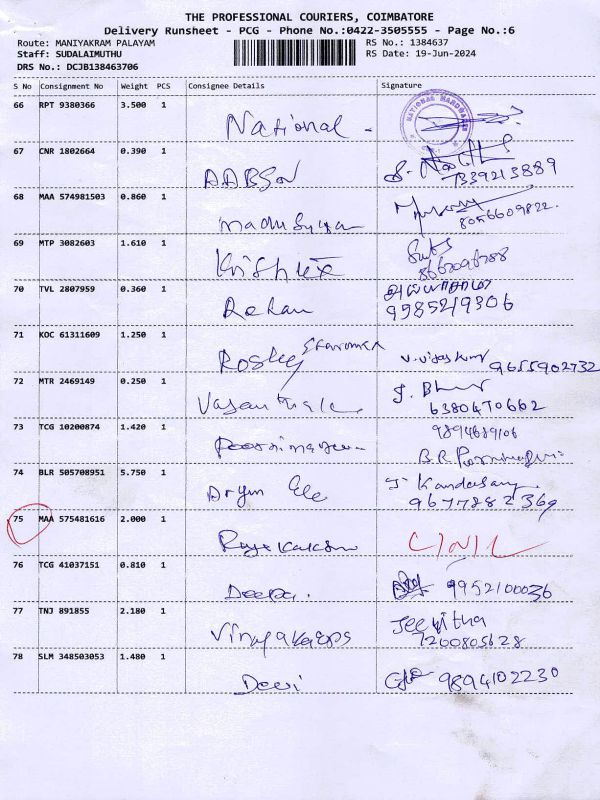 THE PROFESSIONAL COURIERS, COIMBATORE
Delivery Runsheet - PCG - Phone No.:0422-3505555 - Page No.:6
Route: MANIYAKRAM PALAYAM RS No.: 1384637
Staff: SUDALAIMUTHU RS Date: 19-Jun-2024
DRS No.: DCJB138463706
S No Consignment No Weight PCS Consignee Details Signature
66 RPT 9380366 3.500 1
National
NATIONAL HARDWARE
67 CNR 1802664 0.390 1
68 MAA 574981503 0.860 1
8056609822
69 MTP 3082603 1.610 1
70 TVL 2807959 0.360 1
Rehan 9985219306
71 KOC 61311609 1.250 1
9655902732
72 MTR 2469149 0.250 1
6380470662
73 TCG 10200874 1.420 1
9894689106
74 BLR 505708951 5.750 1
J. Kandasamy
9677282369
75 MAA 575481616 2.000 1
76 TCG 41037151 0.810 1
Deepa. 9952100036
77 TNJ 891855 2.180 1
Jeevitha
7200805628
78 SLM 348503053 1.480 1
Devi 9894102230